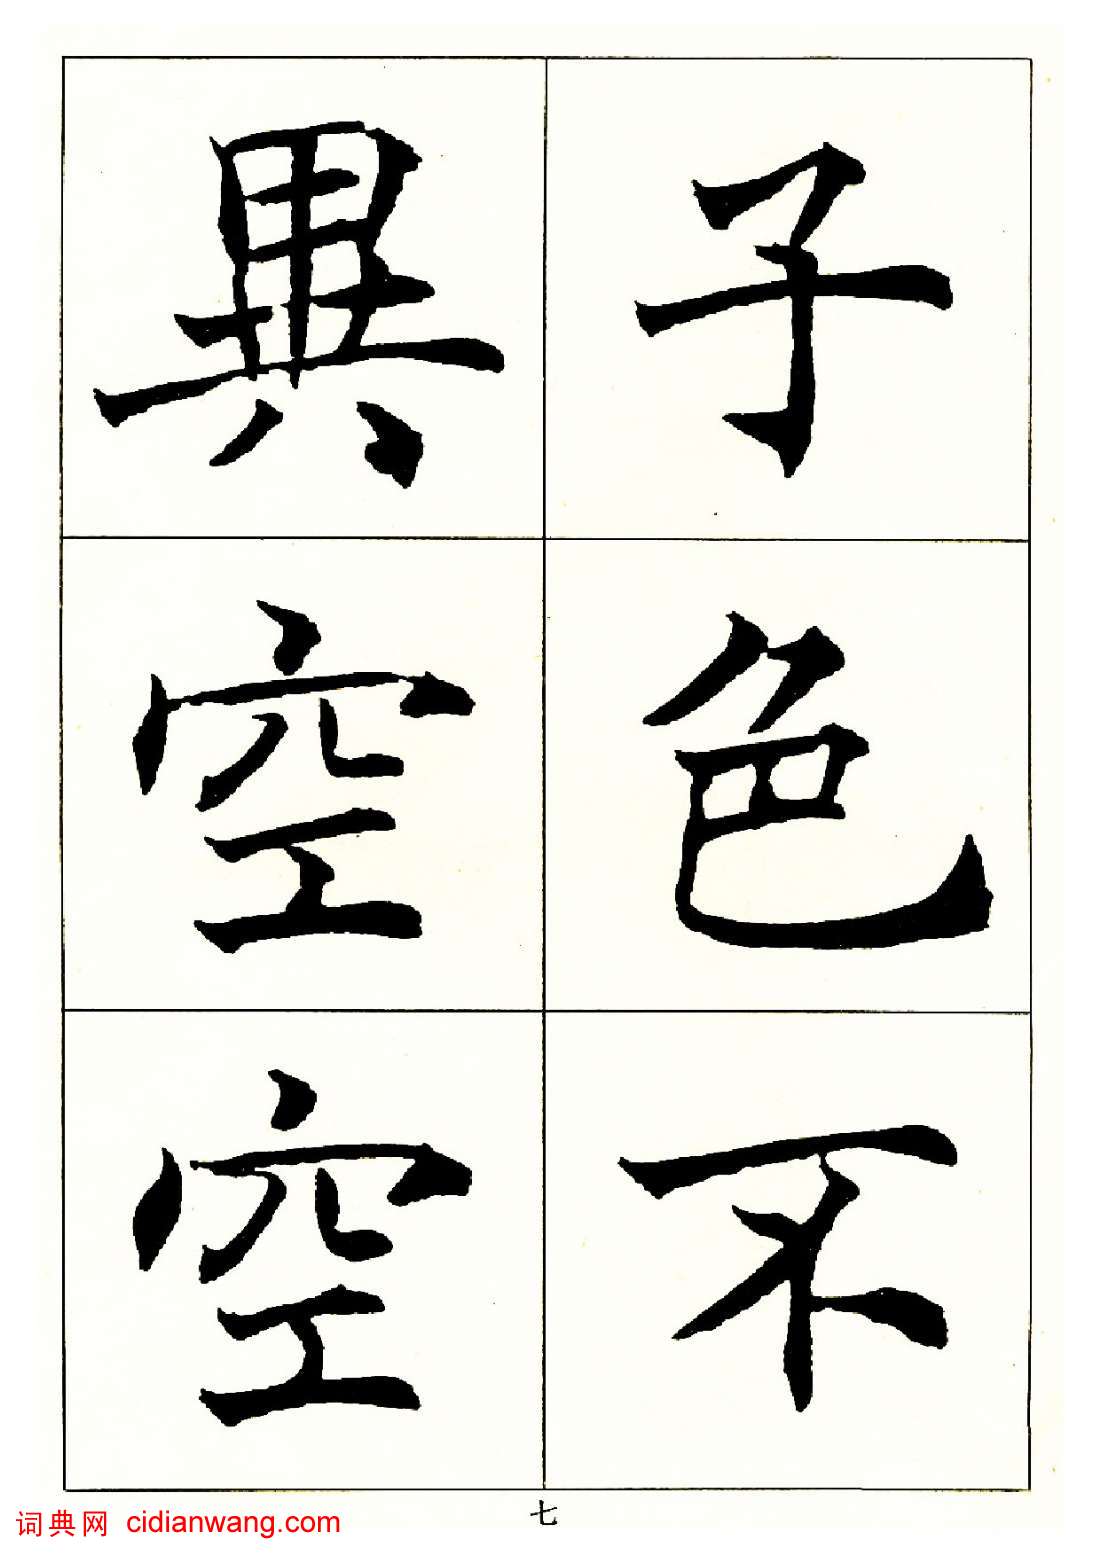 子色不
異空空
七
词典网 cidianwang.com